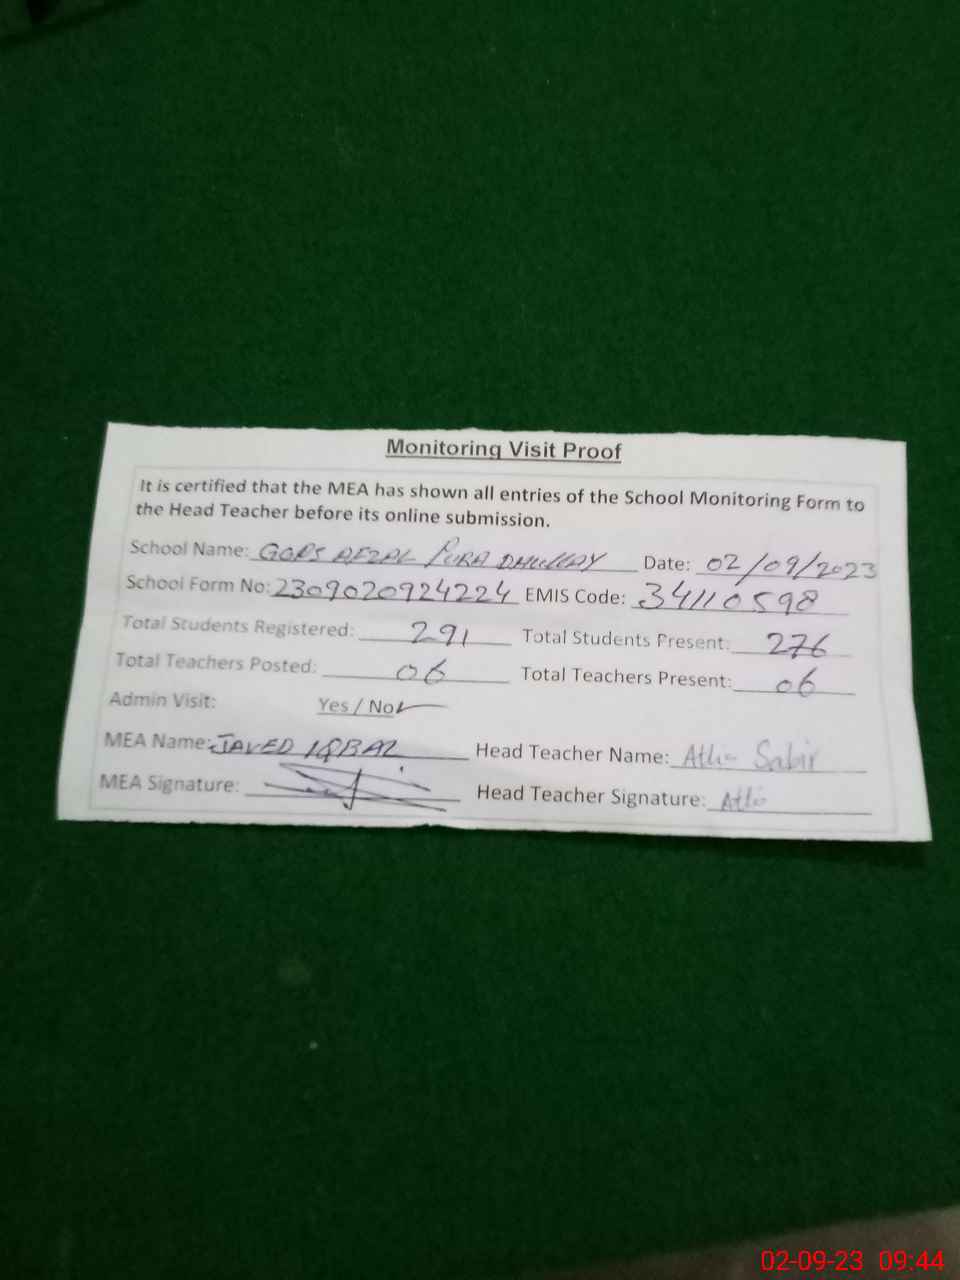 Monitoring Visit Proof
It is certified that the MEA has shown all entries of the School Monitoring Form to
the Head Teacher before its online submission.
School Name: GGPS AFZAL PURA DHULLAY Date: 02/09/2023
School Form No: 2309020924224 EMIS Code: 34110598
Total Students Registered: 291 Total Students Present: 276
Total Teachers Posted: 06 Total Teachers Present: 06
Admin Visit: Yes / No✓
MEA Name: JAVED IQBAL Head Teacher Name: Sabir
MEA Signature: Head Teacher Signature:
02-09-23 09:44